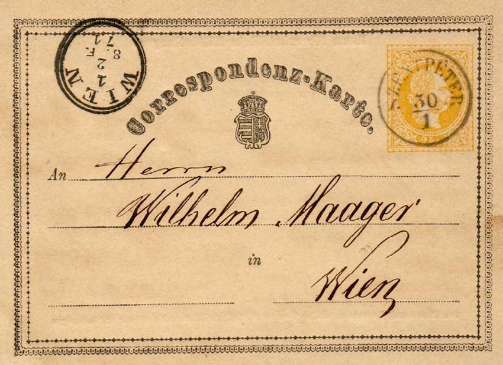 WIEN
1
2
F
8.
71
Correspondenz-Karte.
SZENTPÉTER
30
1
An Herrn
Wilhelm Maager
in
Wien